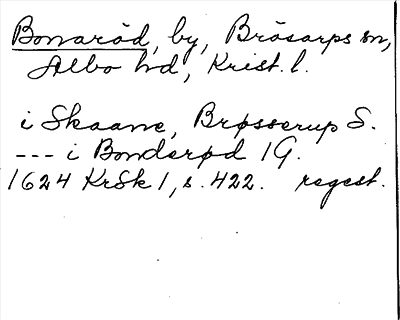 Bonaröd, by, Brösarps sn,
Albo hd, Krist. l.
i Skaane, Brøsserup S.
--- i Bonderød 1G.
1624 KrSk 1, s. 422. regest.